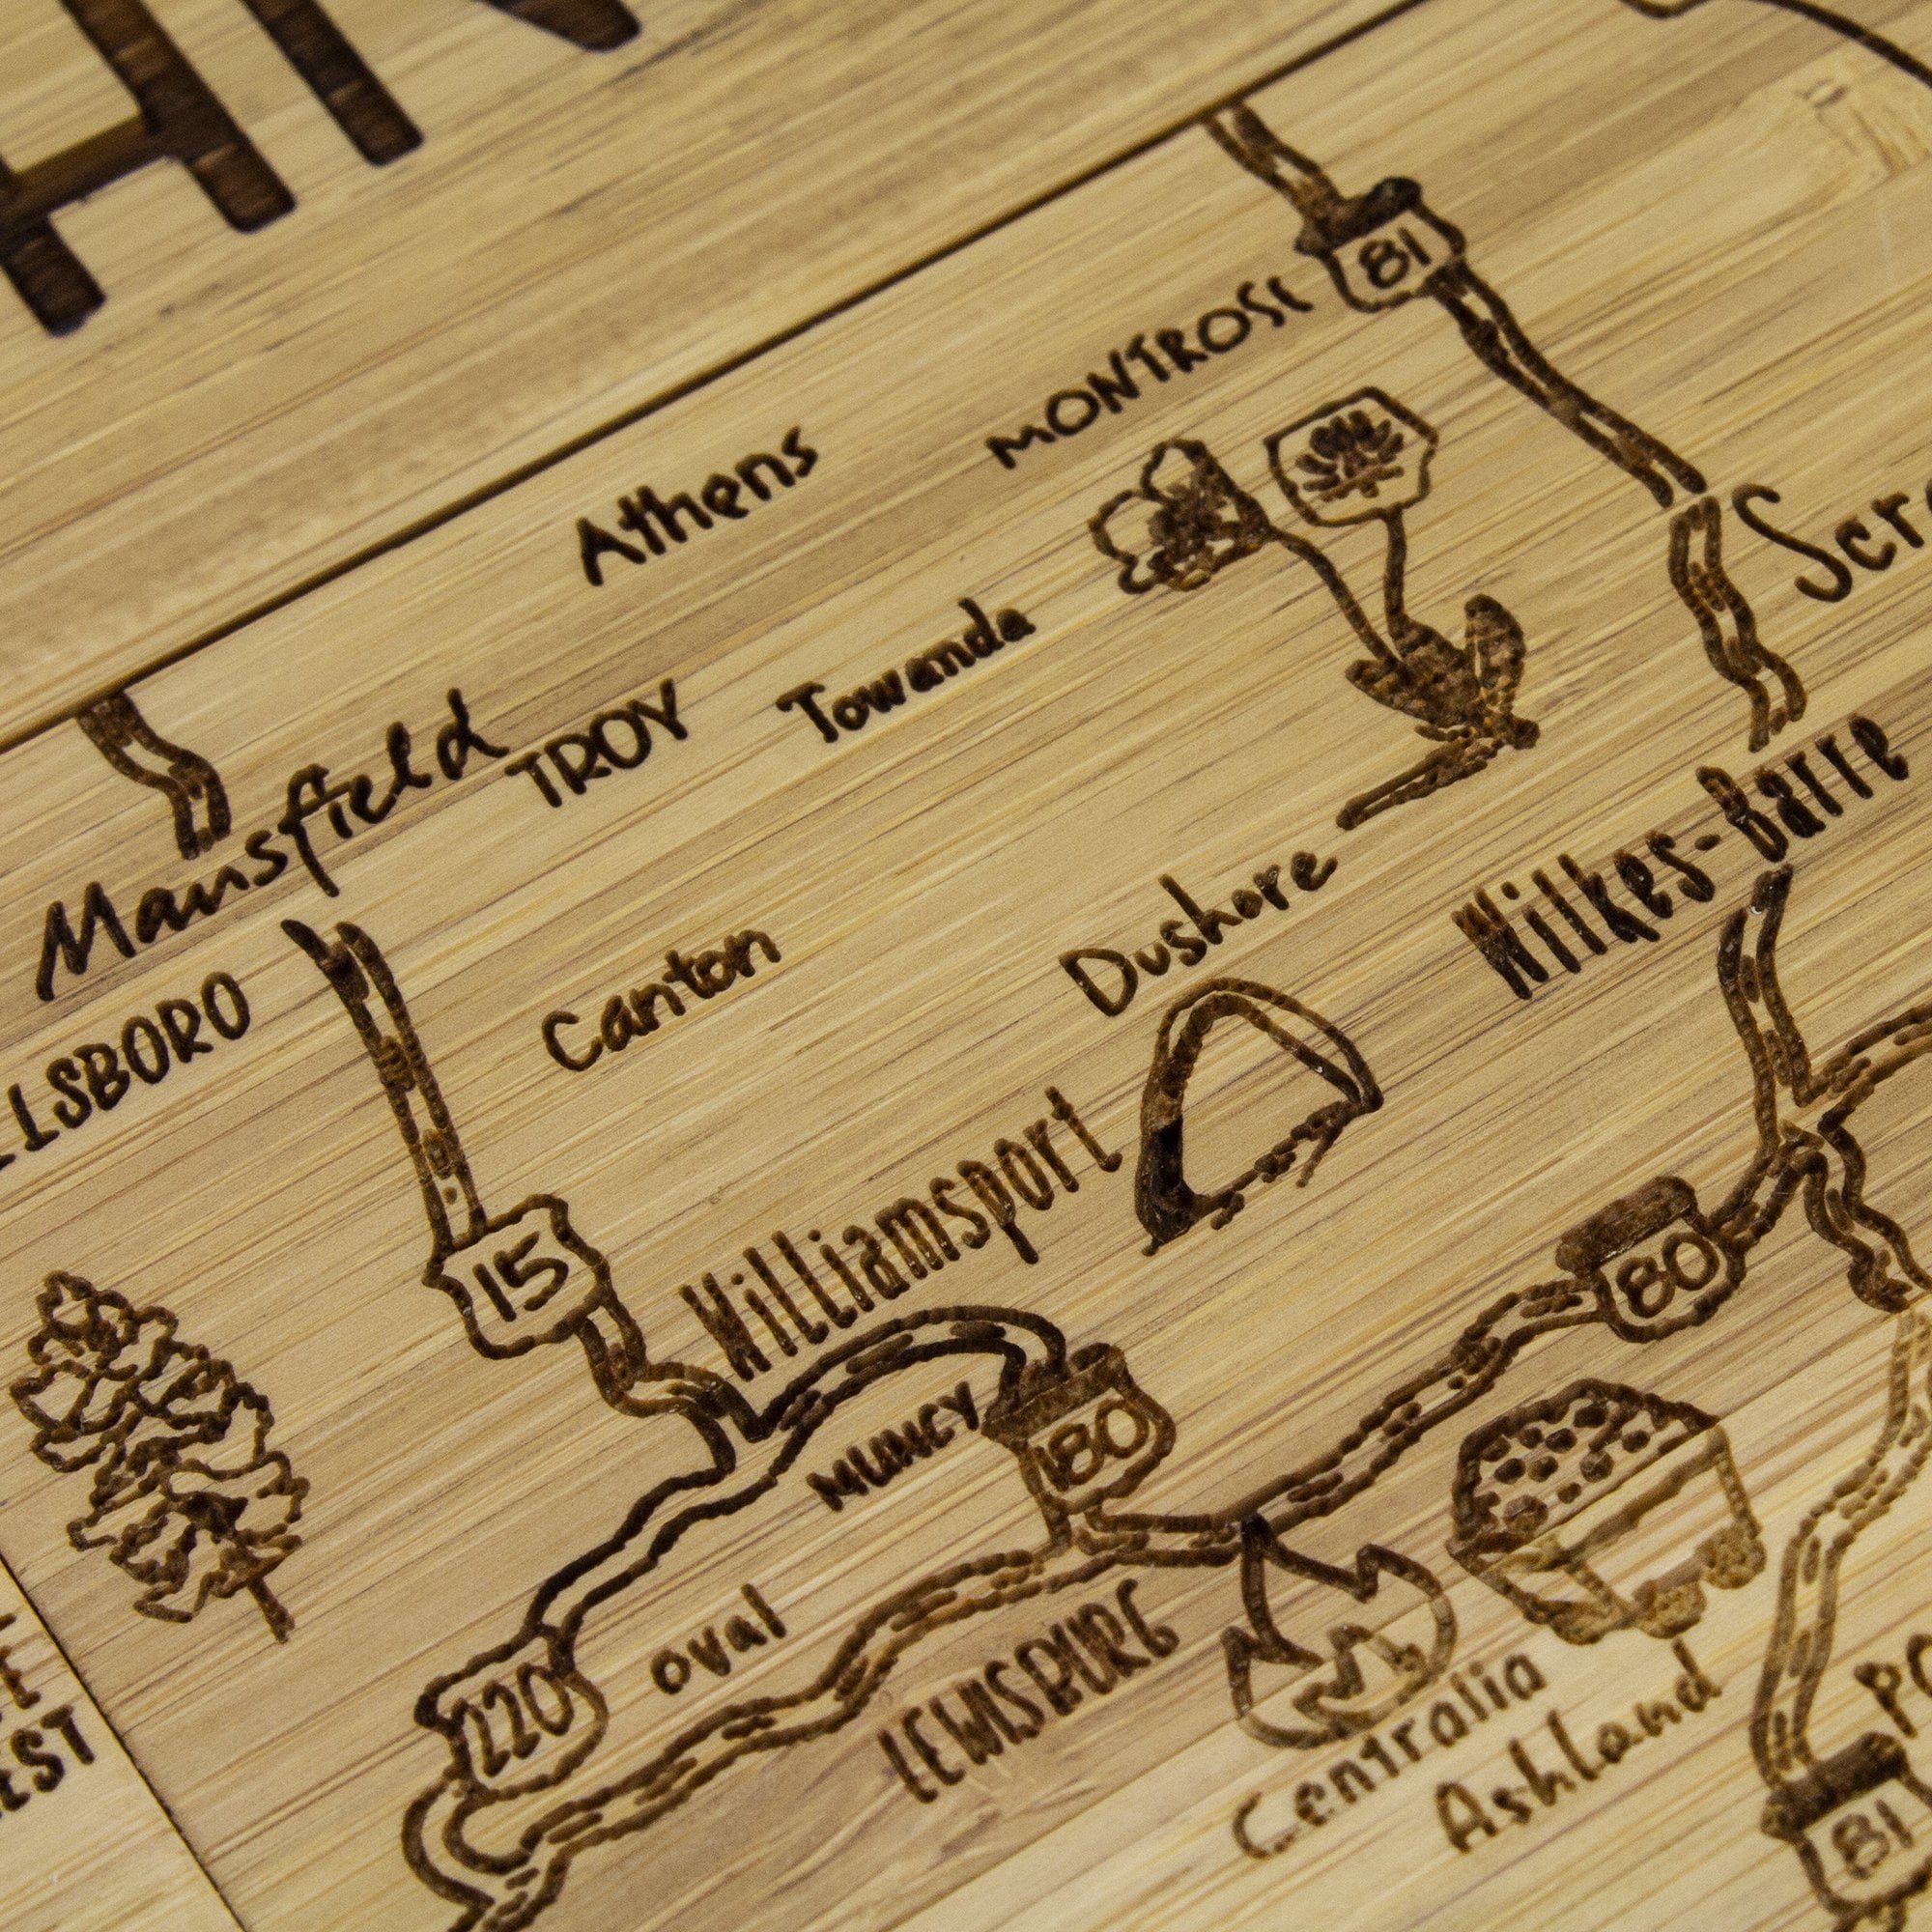 81
MONTROSE
Athens
Scr
Towanda
TROY
Mansfield
Wilkes-Barre
Dushore
Canton
LSBORO
Williamsport
15
80
180
MUNCY
Oval
220
LEWISBURG
Centralia
Ashland
EST
81